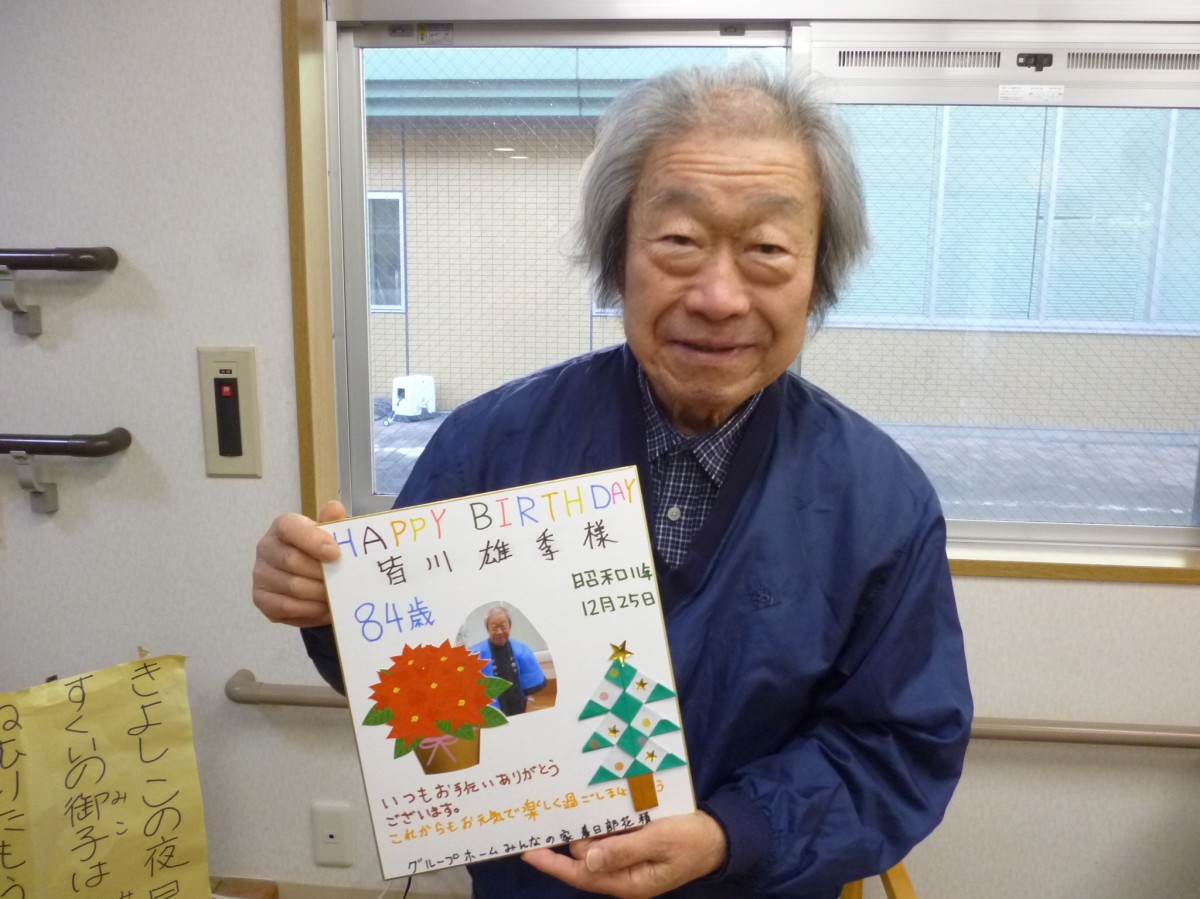 HAPPY BIRTHDAY
皆川 雄季 様
昭和11年
12月25日
84歳
いつもお手伝いありがとう
ございます。
これからもお元気で楽しく過ごしましょう
グループホームみんなの家 春日部花積
きよしこの夜
すくいの御子は
みこ
ねむりたもう